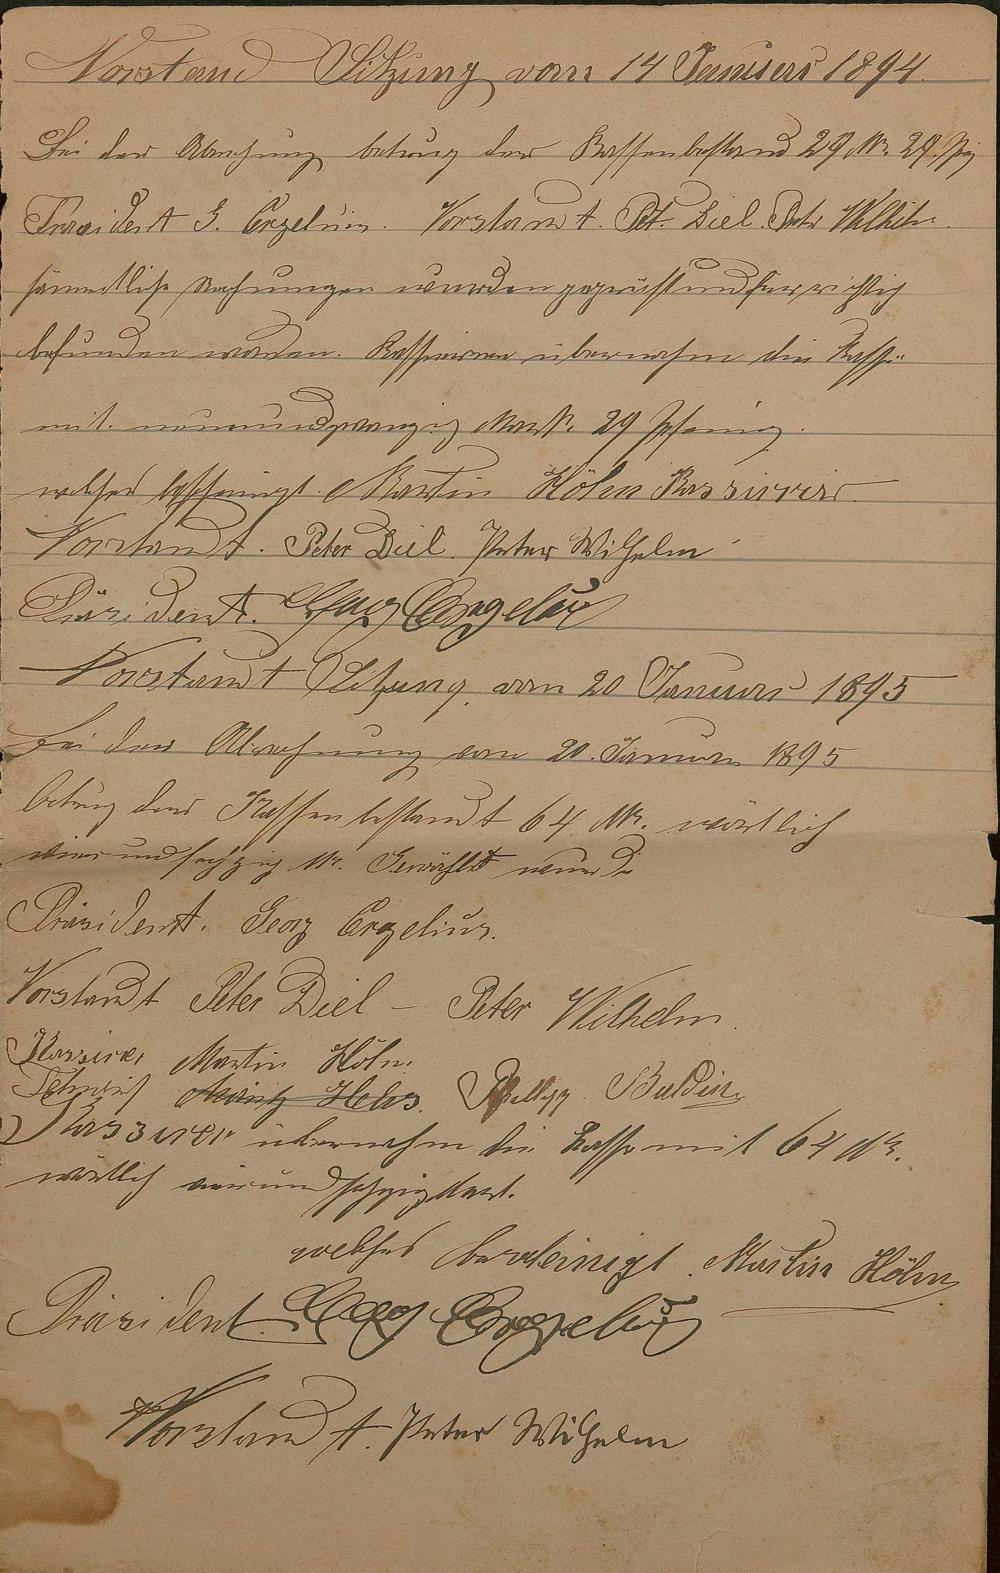 Vorstand Sitzung vom 14 Januar 1894.
Bei der Abrechnung betrug der Kassenbestand 29 M. 29 Pfg
Präsident G. Ergelius. Vorstandt. Pet. Diel. Peter Wilhelm.
sämmtliche Rechnungen wurden geprüft und für richtig
befunden worden. Kassierer übernahm die Kasse
mit neunundzwanzig Mark. 29 Pfennig.
welches bescheinigt Martin Höhn Kassierer.
Vorstandt. Peter Diel. Peter Wilhelm
Präsident. Georg Ergelius
Vorstandt Sitzung vom 20 Januar 1895
Bei der Abrechnung vom 20. Januar 1895
betrug der Kassenbestandt 64 M. wörtlich
vierundsechzig M. Gewählt wurde
Präsident. Georg Ergelius.
Vorstandt Peter Diel – Peter Wilhelm.
Kassirer Martin Höhn
Moritz Hehs.
Kassirer übernahm die Kasse mit 64 M.
wörtlich vierundsechzig Mark.
welches bescheinigt. Martin Höhn
Präsident. Georg Ergelius
Vorstandt. Peter Wilhelm